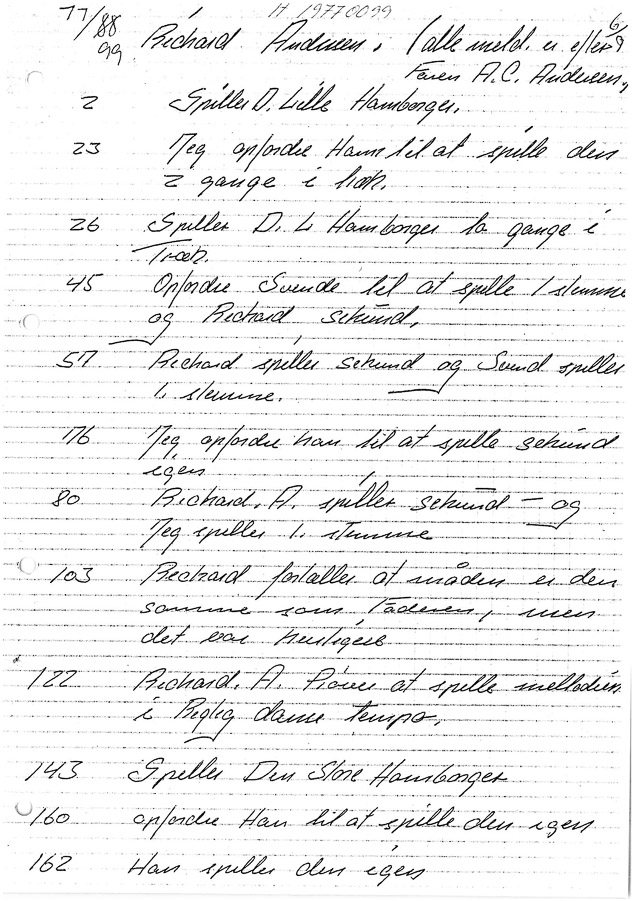 77/88 H 19770099 6/9
99 Richard Andersen. (alle meld. er efter
Faren A.C. Andersen,
2 Spiller D. Lille Hamborger.
23 Jeg opfordre Ham til at spille den
2 gange i træk.
26 Spiller D. L Hamborger to gange i
Træk.
45 Opfordre Svende til at spille 1 stemme
og Richard sekund.
57 Richard spiller sekund og Svend spiller
1. stemme.
76 Jeg opfordre han til at spille sekund
igen
80 Richard. A. spiller sekund - og
Jeg spiller 1. stemme
103 Richard fortæller at måden er den
samme som Faderen, men
det var hurtigere
122 Richard. A. Prøver at spille mellodien
i Rigtig danse tempo.
143 Spiller Den Store Hamborger
160 opfordre Han til at spille den igen
162 Han spiller den igen